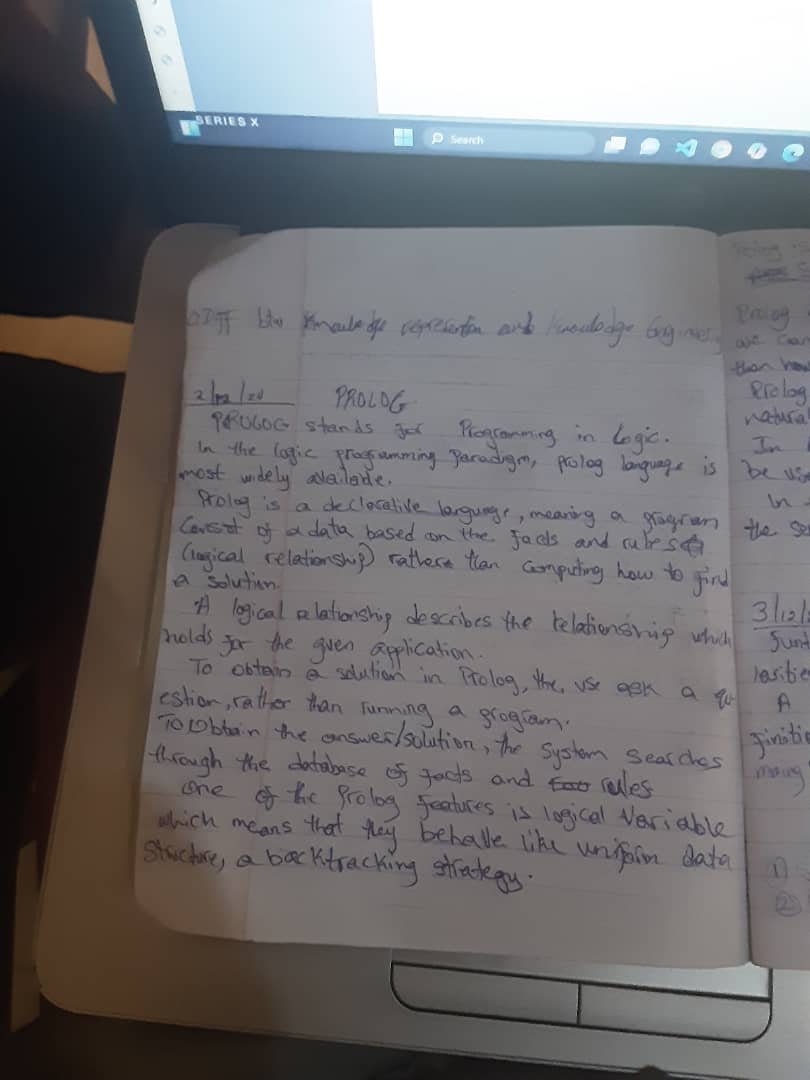 SERIES X
Search
Diff btw Knowledge and knowledge
2/12/24 PROLOG
PROLOG stands for Programming in Logic.
In the logic programming paradigm, prolog language is
most widely available.
Prolog is a declarative language, meaning a program
Consist of a data based on the facts and rules
(logical relationship) rather than Computing how to find
a solution.
A logical relationship describes the relationship which
holds for the given application.
To obtain a solution in Prolog, the, use ask a qu
estion, rather than running a program.
To Obtain the answer/solution, the System Searches
through the database of facts and rules
one of the Prolog features is logical Variable
which means that they behave like uniform data
Structure, a backtracking strategy.
Prolog
we can
than how
Prolog
natura
In
be
In
the
3/12/
A
1)
2)